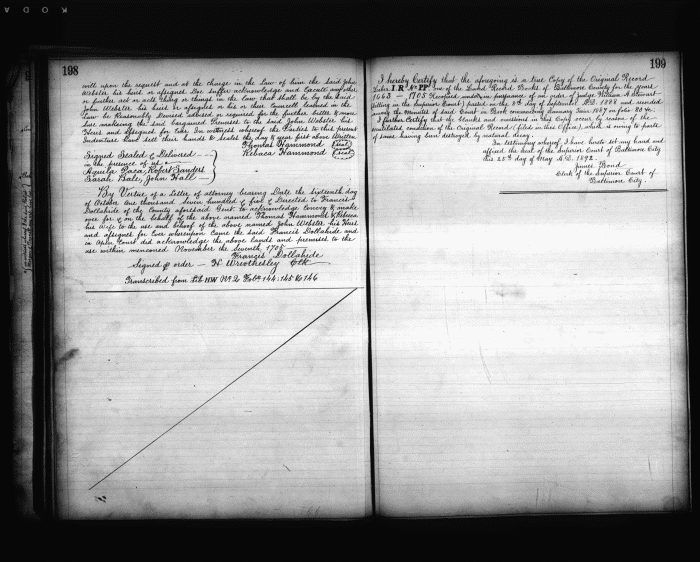 198
will upon the request and at the charge in the Law of him the said John
Webster his heirs or assignes Doe suffer acknowledge and Execute any other
or further act or acts thing or things in the Law that shall be by the said
John Webster his heirs or assignes or his or their Councell learned in the
Law be Reasonably Devised advised or required for the further better & more
sure makeing the said bargained Premisses to the said John Webster his
Heirs and assignes for ever In witness whereof the Parties to this present
Indenture have sett their hands & Seales the day & year first above Written
Signed Sealed & Delivered
in the presence of us
Aquila Paca, Robert Sanders
Sarah Bale, John Hall
Thomas Hammond (Seal)
Rebeca Hammond (Seal)
By Vertue of a Letter of attorney bearing Date the sixteenth day
of October one thousand seven hundred & five & Directed to Francis
Dollahide of the County aforesaid Gent. to acknowledge convey & make
over for & on the behalf of the above named Thomas Hammond & Rebeca
his Wife to the use and behoof of the above named John Webster his Heirs
and assignes for Ever whereupon Came the said Francis Dollahide and
in Open Court did acknowledge the above Lands and premisses to the
use within mencioned November the Seventh
Francis Dollahide
Signed order W Wriothesley Clk
Transcribed from Lib HW No 2 Folo 144:145 & 146
199
I hereby Certify that the aforegoing is a true Copy of the Original Record
Liber I R No PP One of the Land Record Books of Baltimore County for the years
1663 — 1705 Recopied under, in pursuance of an order of Judge William A Stewart
sitting in the Superior Court) passed on the 8th day of September A.D. 1888 and recorded
among the Minutes of said Court in Book commencing January Term 1887 on folio 80 &c.
I further Certify that the blanks and omissions in this Copy occur by reason of the
mutilated condition of the Original Record (filed in this Office), which is owing to parts
of same having been destroyed by natural decay.
In testimony whereof, I have hereto set my hand and
affixed the seal of the Superior Court of Baltimore City
this 28th day of May A.D. 1892.
James Bond
Clerk of the Superior Court of
Baltimore City.